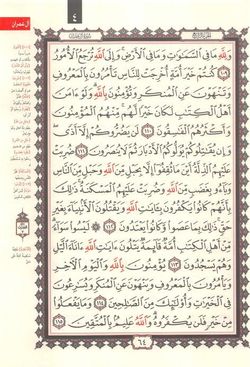 آل عمران
٤
الجزء الرابع
سورة آل عمران
وَلِلَّهِ مَا فِي السَّمَٰوَٰتِ وَمَا فِي الْأَرْضِ وَإِلَى اللَّهِ تُرْجَعُ الْأُمُورُ
﴿١٠٩﴾ كُنتُمْ خَيْرَ أُمَّةٍ أُخْرِجَتْ لِلنَّاسِ تَأْمُرُونَ بِالْمَعْرُوفِ
وَتَنْهَوْنَ عَنِ الْمُنكَرِ وَتُؤْمِنُونَ بِاللَّهِ وَلَوْ ءَامَنَ
أَهْلُ الْكِتَٰبِ لَكَانَ خَيْرًا لَّهُم مِّنْهُمُ الْمُؤْمِنُونَ
وَأَكْثَرُهُمُ الْفَٰسِقُونَ ﴿١١٠﴾ لَن يَضُرُّوكُمْ إِلَّا أَذًى
وَإِن يُقَٰتِلُوكُمْ يُوَلُّوكُمُ الْأَدْبَارَ ثُمَّ لَا يُنصَرُونَ ﴿١١١﴾ ضُرِبَتْ
عَلَيْهِمُ الذِّلَّةُ أَيْنَ مَا ثُقِفُوا إِلَّا بِحَبْلٍ مِّنَ اللَّهِ وَحَبْلٍ مِّنَ النَّاسِ
وَبَاءُو بِغَضَبٍ مِّنَ اللَّهِ وَضُرِبَتْ عَلَيْهِمُ الْمَسْكَنَةُ ذَٰلِكَ
بِأَنَّهُمْ كَانُوا يَكْفُرُونَ بِـَٔايَٰتِ اللَّهِ وَيَقْتُلُونَ الْأَنۢبِيَاءَ بِغَيْرِ
حَقٍّ ذَٰلِكَ بِمَا عَصَوا وَّكَانُوا يَعْتَدُونَ ﴿١١٢﴾ لَيْسُوا سَوَاءً
مِّنْ أَهْلِ الْكِتَٰبِ أُمَّةٌ قَائِمَةٌ يَتْلُونَ ءَايَٰتِ اللَّهِ ءَانَاءَ الَّيْلِ
وَهُمْ يَسْجُدُونَ ﴿١١٣﴾ يُؤْمِنُونَ بِاللَّهِ وَالْيَوْمِ الْءَاخِرِ
وَيَأْمُرُونَ بِالْمَعْرُوفِ وَيَنْهَوْنَ عَنِ الْمُنكَرِ وَيُسَٰرِعُونَ
فِي الْخَيْرَٰتِ وَأُولَٰئِكَ مِنَ الصَّٰلِحِينَ ﴿١١٤﴾ وَمَا يَفْعَلُوا
مِنْ خَيْرٍ فَلَن يُكْفَرُوهُ وَاللَّهُ عَلِيمٌۢ بِالْمُتَّقِينَ ﴿١١٥﴾
٦٤